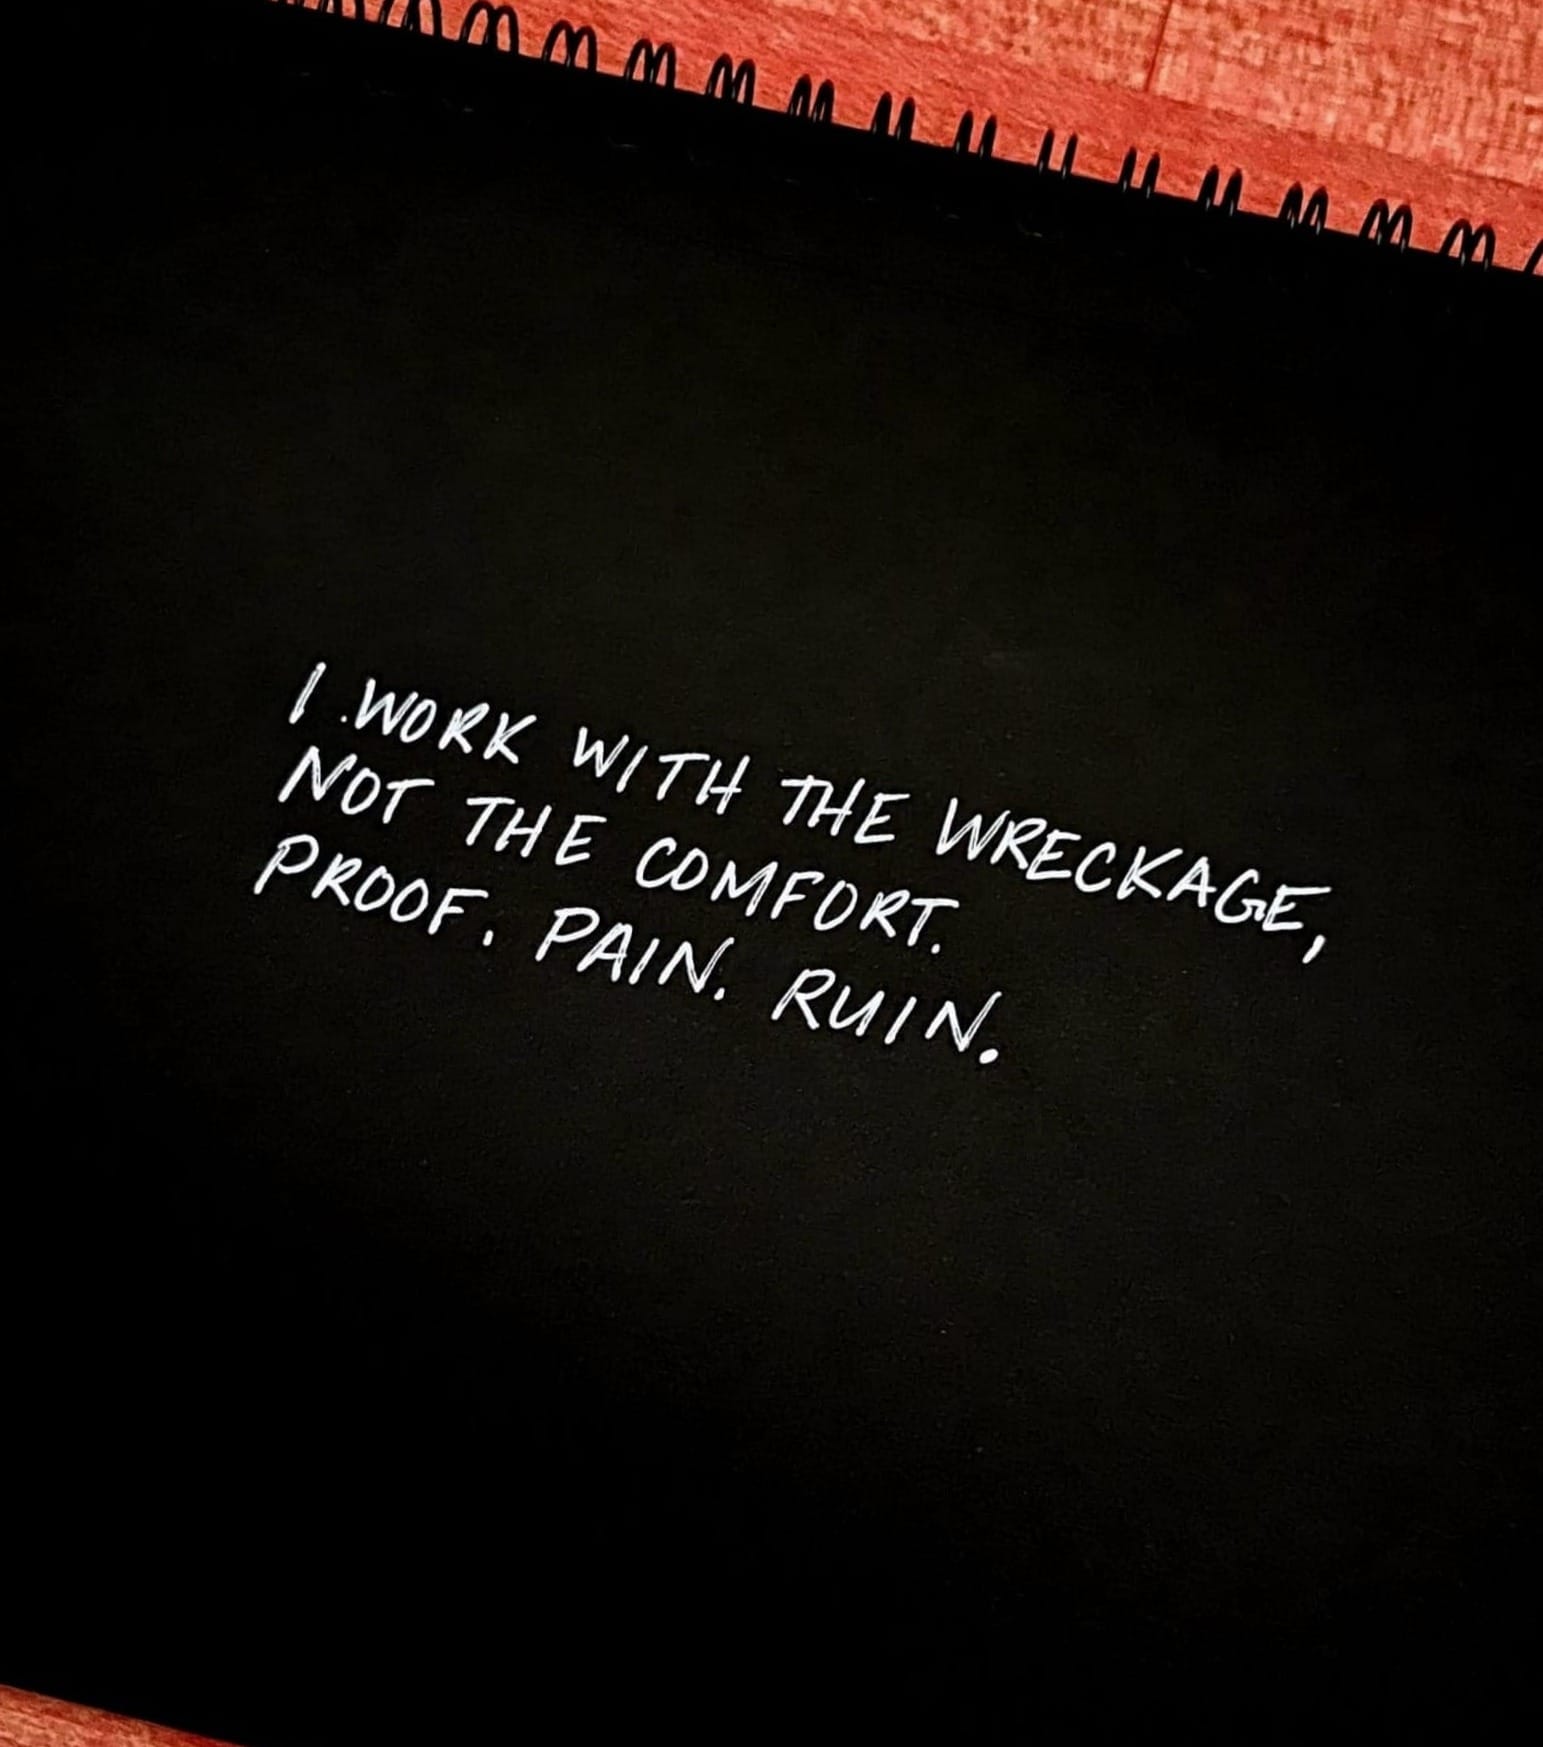 I WORK WITH THE WRECKAGE,
NOT THE COMFORT.
PROOF. PAIN. RUIN.